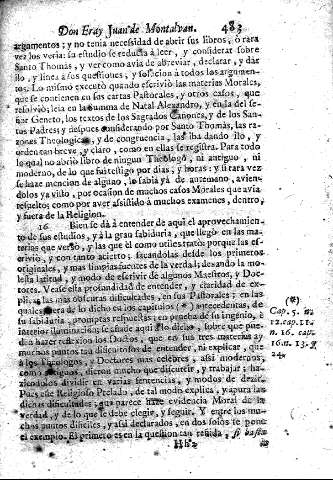 Don Fray Juan de Montalvan. 483
argumentos; y no tenia necessidad de abrir sus libros, ò rara
vez los veria: su estudio se reducia à leer, y considerar sobre
Santo Thomàs, y ver como avia de abreviar, declarar, y dàr
ilo, y linea à sus questiones, y solucion à todos los argumen-
tos. Lo mismo executò quando escriviò las materias Morales,
que se contienen en sus cartas Pastorales, y otros casos, que
resolviò; leìa en la summa de Natal Alexandro, y en la del se-
ñor Geneto, los textos de los Sagrados Canones, y de los San-
tos Padres; y despues considerando por Santo Thomàs, las ra-
zones Theologicas, y de congruencia, las iba dando ilo, y
orden tan breve, y claro, como en ellas se registra. Para todo
lo qual no abriò libro de ningun Theologo, ni antiguo, ni
moderno, de lo que fui testigo por dias, y horas: y si rara vez
se hace mencion de alguno, lo sabìa yà de antemano, avien-
dolos yà visto, por ocasion de muchos casos Morales que avia
resuelto; como por aver assistido à muchos examenes, dentro,
y fuera de la Religion.
16 Bien se dà à entender de aqui el aprovechamien-
to de sus estudios, y à la gran sabiduria, que llegò en las ma-
terias que versò, y las que èl como utiles tratò: porque las es-
criviò, y con tanto acierto; sacandolas desde los primeros
originales, y mas limpias fuentes de la verdad; dexando la mo-
lesta latitud, y modo de escrivir de algunos Maestros, y Doc-
tores. Vease esta profundidad de entender, y claridad de ex-
plicar las mas obscuras dificultades, en sus Pastorales; en las
quales, fuera de lo dicho en los capitulos (*) antecedentes, de
su sabiduria, promptas respuestas; en prueba de su ingenio, è
interior iluminacion; se añade aqui lo dicho, sobre que pue-
dan hazer reflexion los Doctos, que en sus tres materias ay
muchos puntos tan dificultosos de entender, ni explicar, que
à los Theologos, y Doctores mas celebres, assi modernos,
como antiguos, dieron mucho que discurrir, y trabajar; ha-
ziendolos dividir en varias sentencias, y modos de dezir.
Pues este Religioso Prelado, de tal modo explica, y apura las
dichas dificultades, que parece hace evidencia Moral de la
verdad, y de lo que se debe elegir, y seguir. Y entre los mu-
chos puntos dificiles, y assi declarados, en dos solos te pone
el exemplo. El primero es en la question tan reñida, si basta
(*)
Cap. 5. in
12. cap. 11.
n. 16. cap.
16. n. 13. y
24.
Hh2